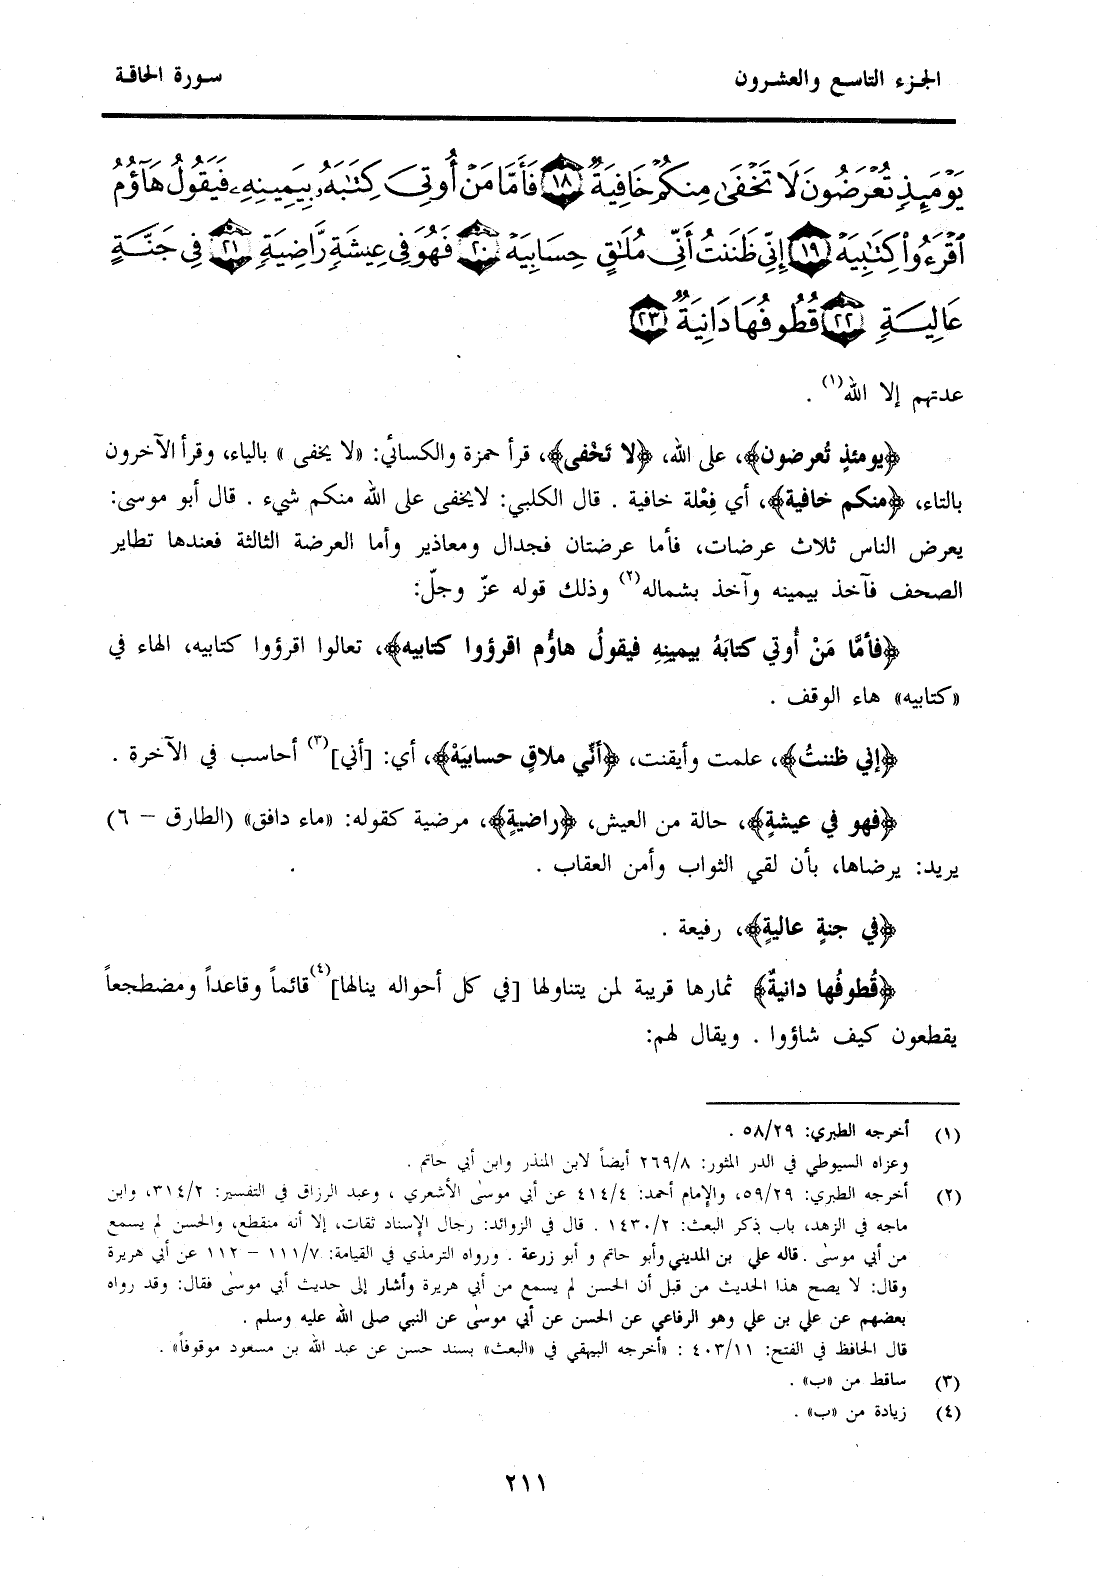 الجزء التاسع والعشرون
سورة الحاقة
يَوْمَئِذٍ تُعْرَضُونَ لَا تَخْفَىٰ مِنكُمْ خَافِيَةٌ ١٨ فَأَمَّا مَنْ أُوتِيَ كِتَٰبَهُۥ بِيَمِينِهِۦ فَيَقُولُ هَآؤُمُ
ٱقْرَءُوا۟ كِتَٰبِيَهْ ١٩ إِنِّي ظَنَنتُ أَنِّي مُلَٰقٍ حِسَابِيَهْ ٢٠ فَهُوَ فِي عِيشَةٍ رَّاضِيَةٍ ٢١ فِي جَنَّةٍ
عَالِيَةٍ ٢٢ قُطُوفُهَا دَانِيَةٌ ٢٣
عدتهم إلا الله(١) .
﴿يومئذٍ تُعرضون﴾، على الله، ﴿لا تَخْفى﴾، قرأ حمزة والكسائي: «لا يخفى» بالياء، وقرأ الآخرون
بالتاء، ﴿منكم خافية﴾، أي فِعْلة خافية . قال الكلبي: لايخفى على الله منكم شيء . قال أبو موسى:
يعرض الناس ثلاث عرضات، فأما عرضتان فجدال ومعاذير وأما العرضة الثالثة فعندها تطاير
الصحف فآخذ بيمينه وآخذ بشماله(٢) وذلك قوله عزّ وجلّ:
﴿فأمَّا مَنْ أُوتي كتابَهُ بيمينِهِ فيقولُ هاؤُم اقرؤوا كتابيه﴾، تعالوا اقرؤوا كتابيه، الهاء في
«كتابيه» هاء الوقف .
﴿إني ظننتُ﴾، علمت وأيقنت، ﴿أنِّي ملاقٍ حسابيَهْ﴾، أي: [أني](٣) أحاسب في الآخرة .
﴿فهو في عيشةٍ﴾، حالة من العيش، ﴿راضيةٍ﴾، مرضية كقوله: «ماء دافق» (الطارق - ٦)
يريد: يرضاها، بأن لقي الثواب وأمن العقاب .
﴿في جنةٍ عاليةٍ﴾، رفيعة .
﴿قُطوفُها دانيةٌ﴾ ثمارها قريبة لمن يتناولها [في كل أحواله ينالها](٤) قائماً وقاعداً ومضطجعاً
يقطعون كيف شاؤوا . ويقال لهم:
(١) أخرجه الطبري: ٥٨/٢٩ .
وعزاه السيوطي في الدر المثور: ٢٦٩/٨ أيضاً لابن المنذر وابن أبي حاتم .
(٢) أخرجه الطبري: ٥٩/٢٩، والإمام أحمد: ٤١٤/٤ عن أبي موسى الأشعري ، وعبد الرزاق في التفسير: ٣١٤/٢، وابن
ماجه في الزهد، باب ذِكر البعث: ١٤٣٠/٢ . قال في الزوائد: رجال الإسناد ثقات، إلا أنه منقطع، والحسن لم يسمع
من أبي موسى . قاله علي بن المديني وأبو حاتم و أبو زرعة . ورواه الترمذي في القيامة: ١١١/٧ - ١١٢ عن أبي هريرة
وقال: لا يصح هذا الحديث من قبل أن الحسن لم يسمع من أبي هريرة وأشار إلى حديث أبي موسى فقال: وقد رواه
بعضهم عن علي بن علي وهو الرفاعي عن الحسن عن أبي موسى عن النبي صلى الله عليه وسلم .
قال الحافظ في الفتح: ٤٠٣/١١ : «أخرجه البيهقي في «البعث» بسند حسن عن عبد الله بن مسعود موقوفاً» .
(٣) ساقط من «ب» .
(٤) زيادة من «ب» .
٢١١